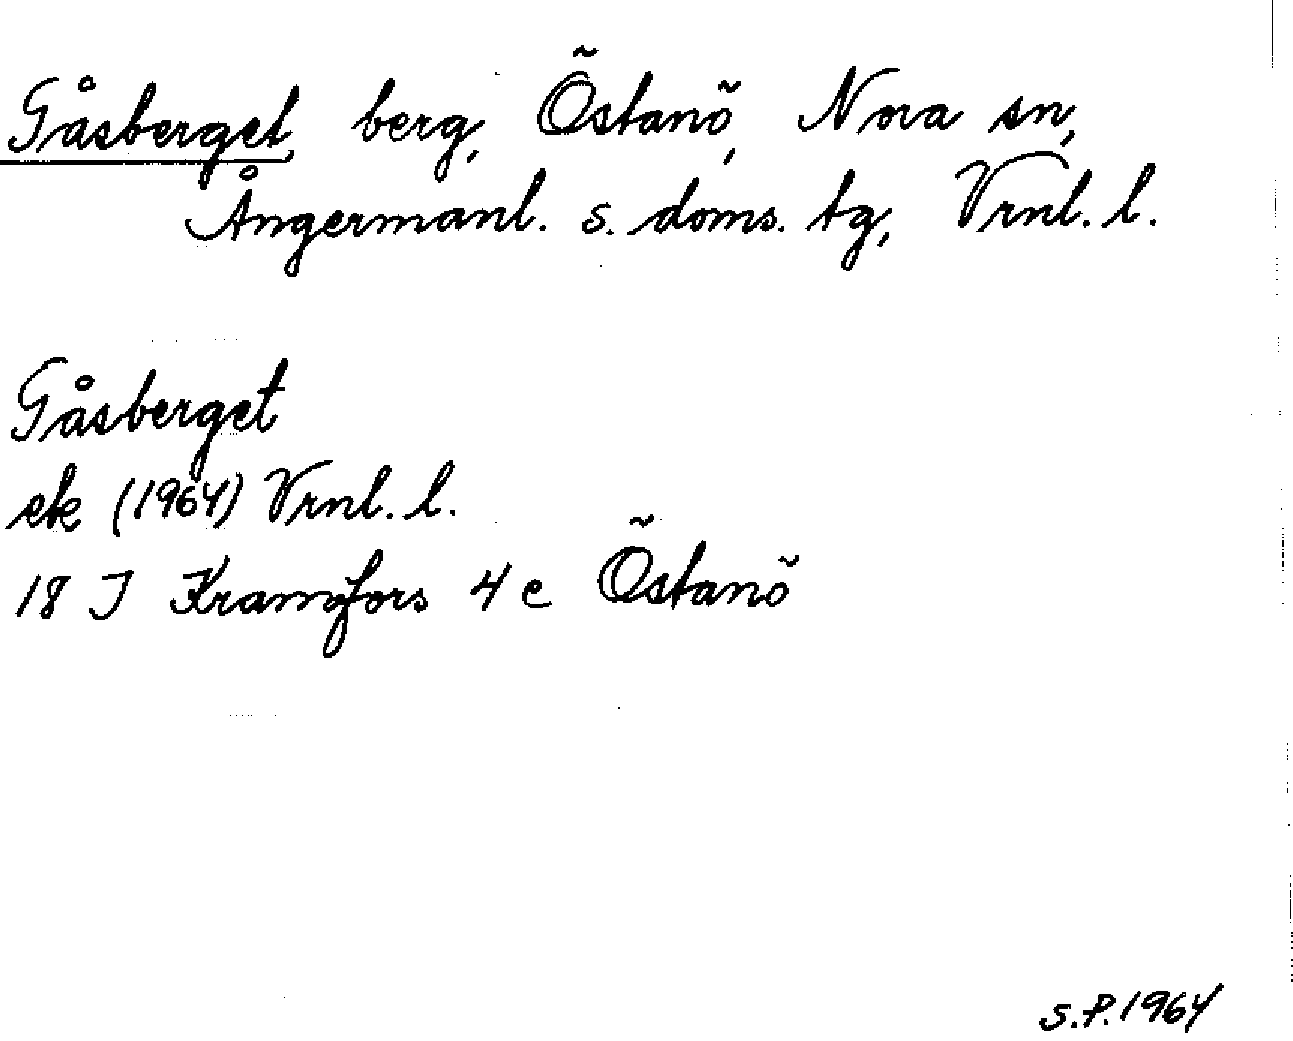 Gåsberget, berg, Östanö, Nora sn,
Ångermanl. s. doms. tg, Vrnl. l.
Gåsberget
ek (1964) Vrnl. l.
18 J Kramfors 4 c Östanö
S.P. 1964